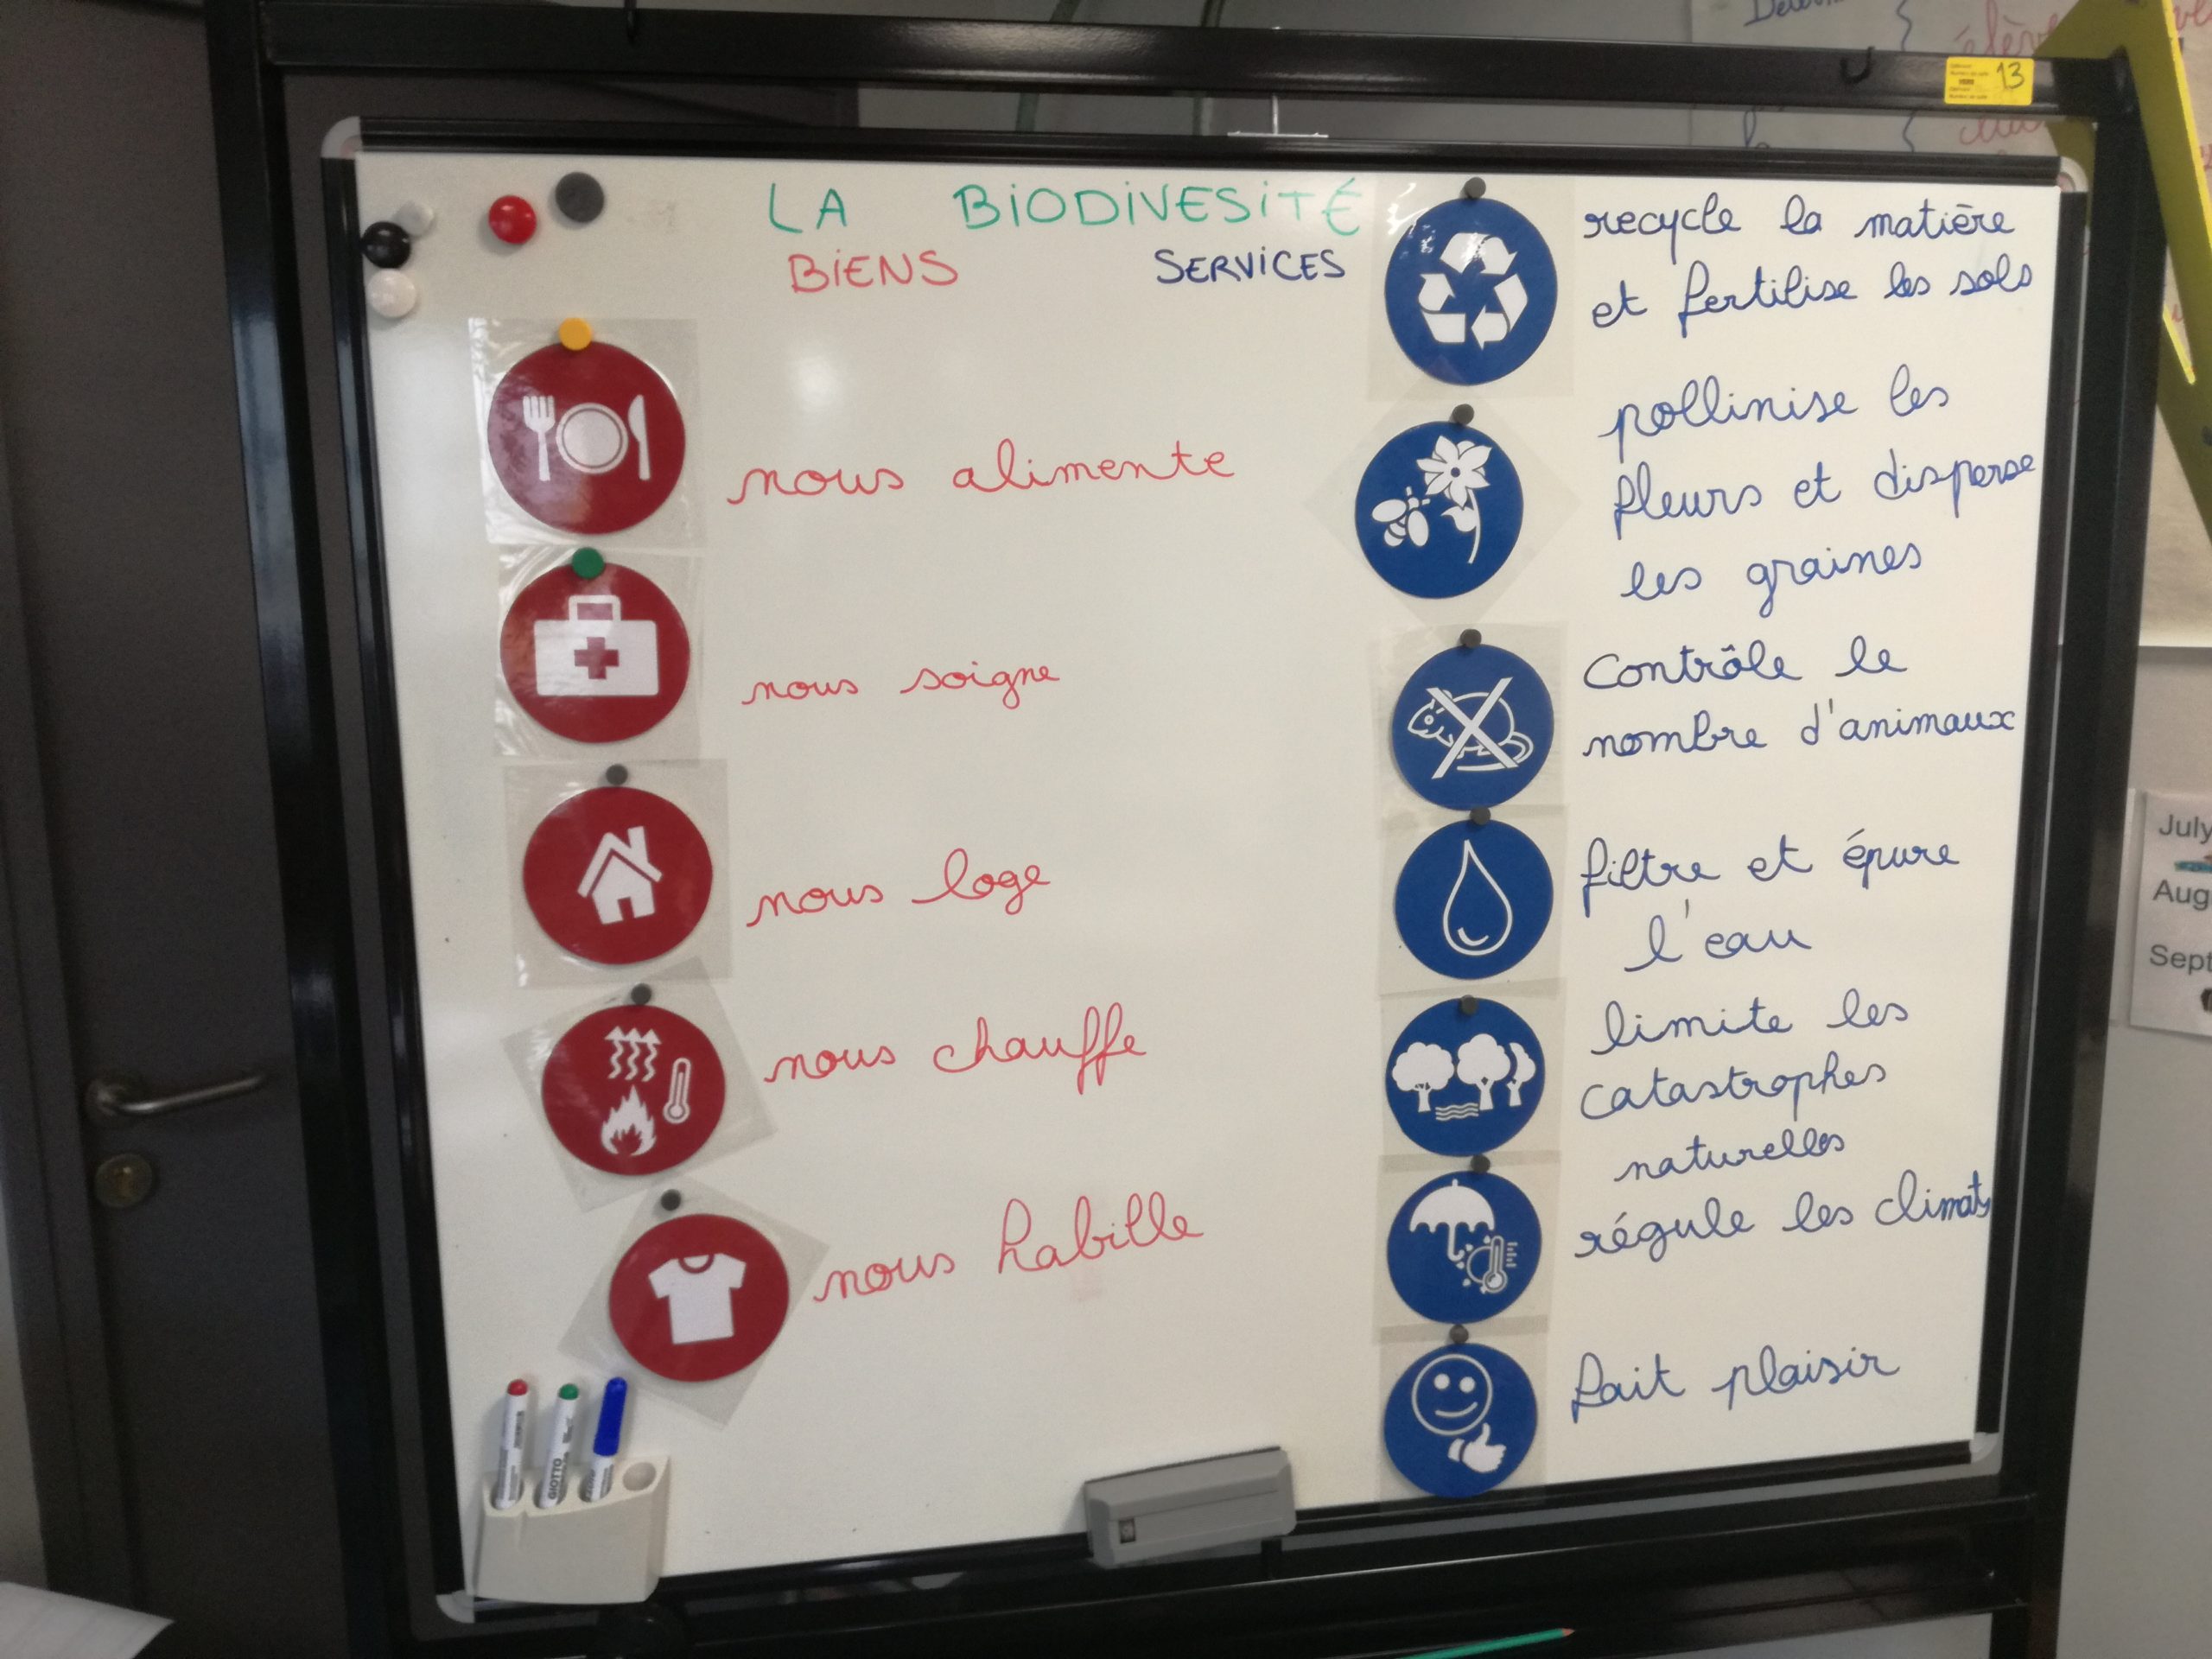 LA BiODiVESiTÉ
BiENS
SERViCES
nous alimente
nous soigne
nous loge
nous chauffe
nous habille
recycle la matière
et fertilise les sols
pollinise les
fleurs et disperse
les graines
Contrôle le
nombre d'animaux
filtre et épure
l'eau
limite les
catastrophes
naturelles
régule les climats
fait plaisir
13
July
Aug
Sept
GIOTTO